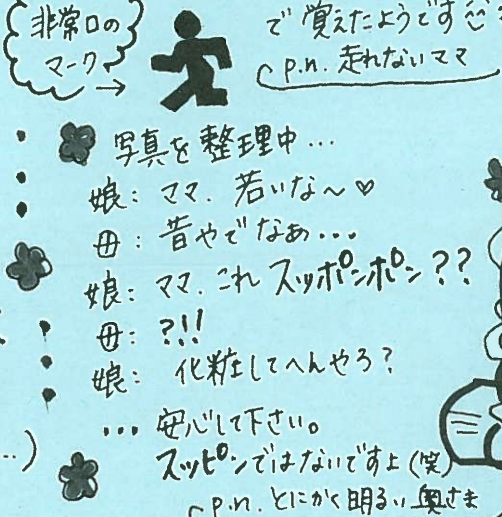 非常口の
マーク→
で覚えたようです
p.n. 走れないママ
写真を整理中…
娘：ママ、若いな〜♡
母：昔やでなぁ…
娘：ママ、これスッポンポン？？
母：？！！
娘：化粧してへんやろ？
…安心して下さい。
スッピンではないですよ(笑)
p.n. とにかく明るい奥さま
…)